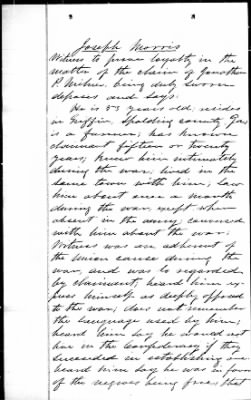 Joseph Morris
Witness to prove loyalty in the
matter of the claim of Jonathan
P. Milner, being duly sworn
deposes and says:
He is 53 years old, resides
in Griffin, Spalding County Ga,
is a farmer, has known
claimant fifteen or twenty
years, knew him intimately
during the war, lived in the
same town with him, saw
him about once a month
during the war, except when
absent in the army, conversed
with him about the war.
Witness was an adherent of
the Union cause during the
war, and was so regarded
by claimant, heard him ex
press himself as deeply opposed
to the war, does not remember
the language used by him,
heard him say he would not
live in the Confederacy if they
succeeded in establishing one
heard him say he was in favor
of the negroes being free, that